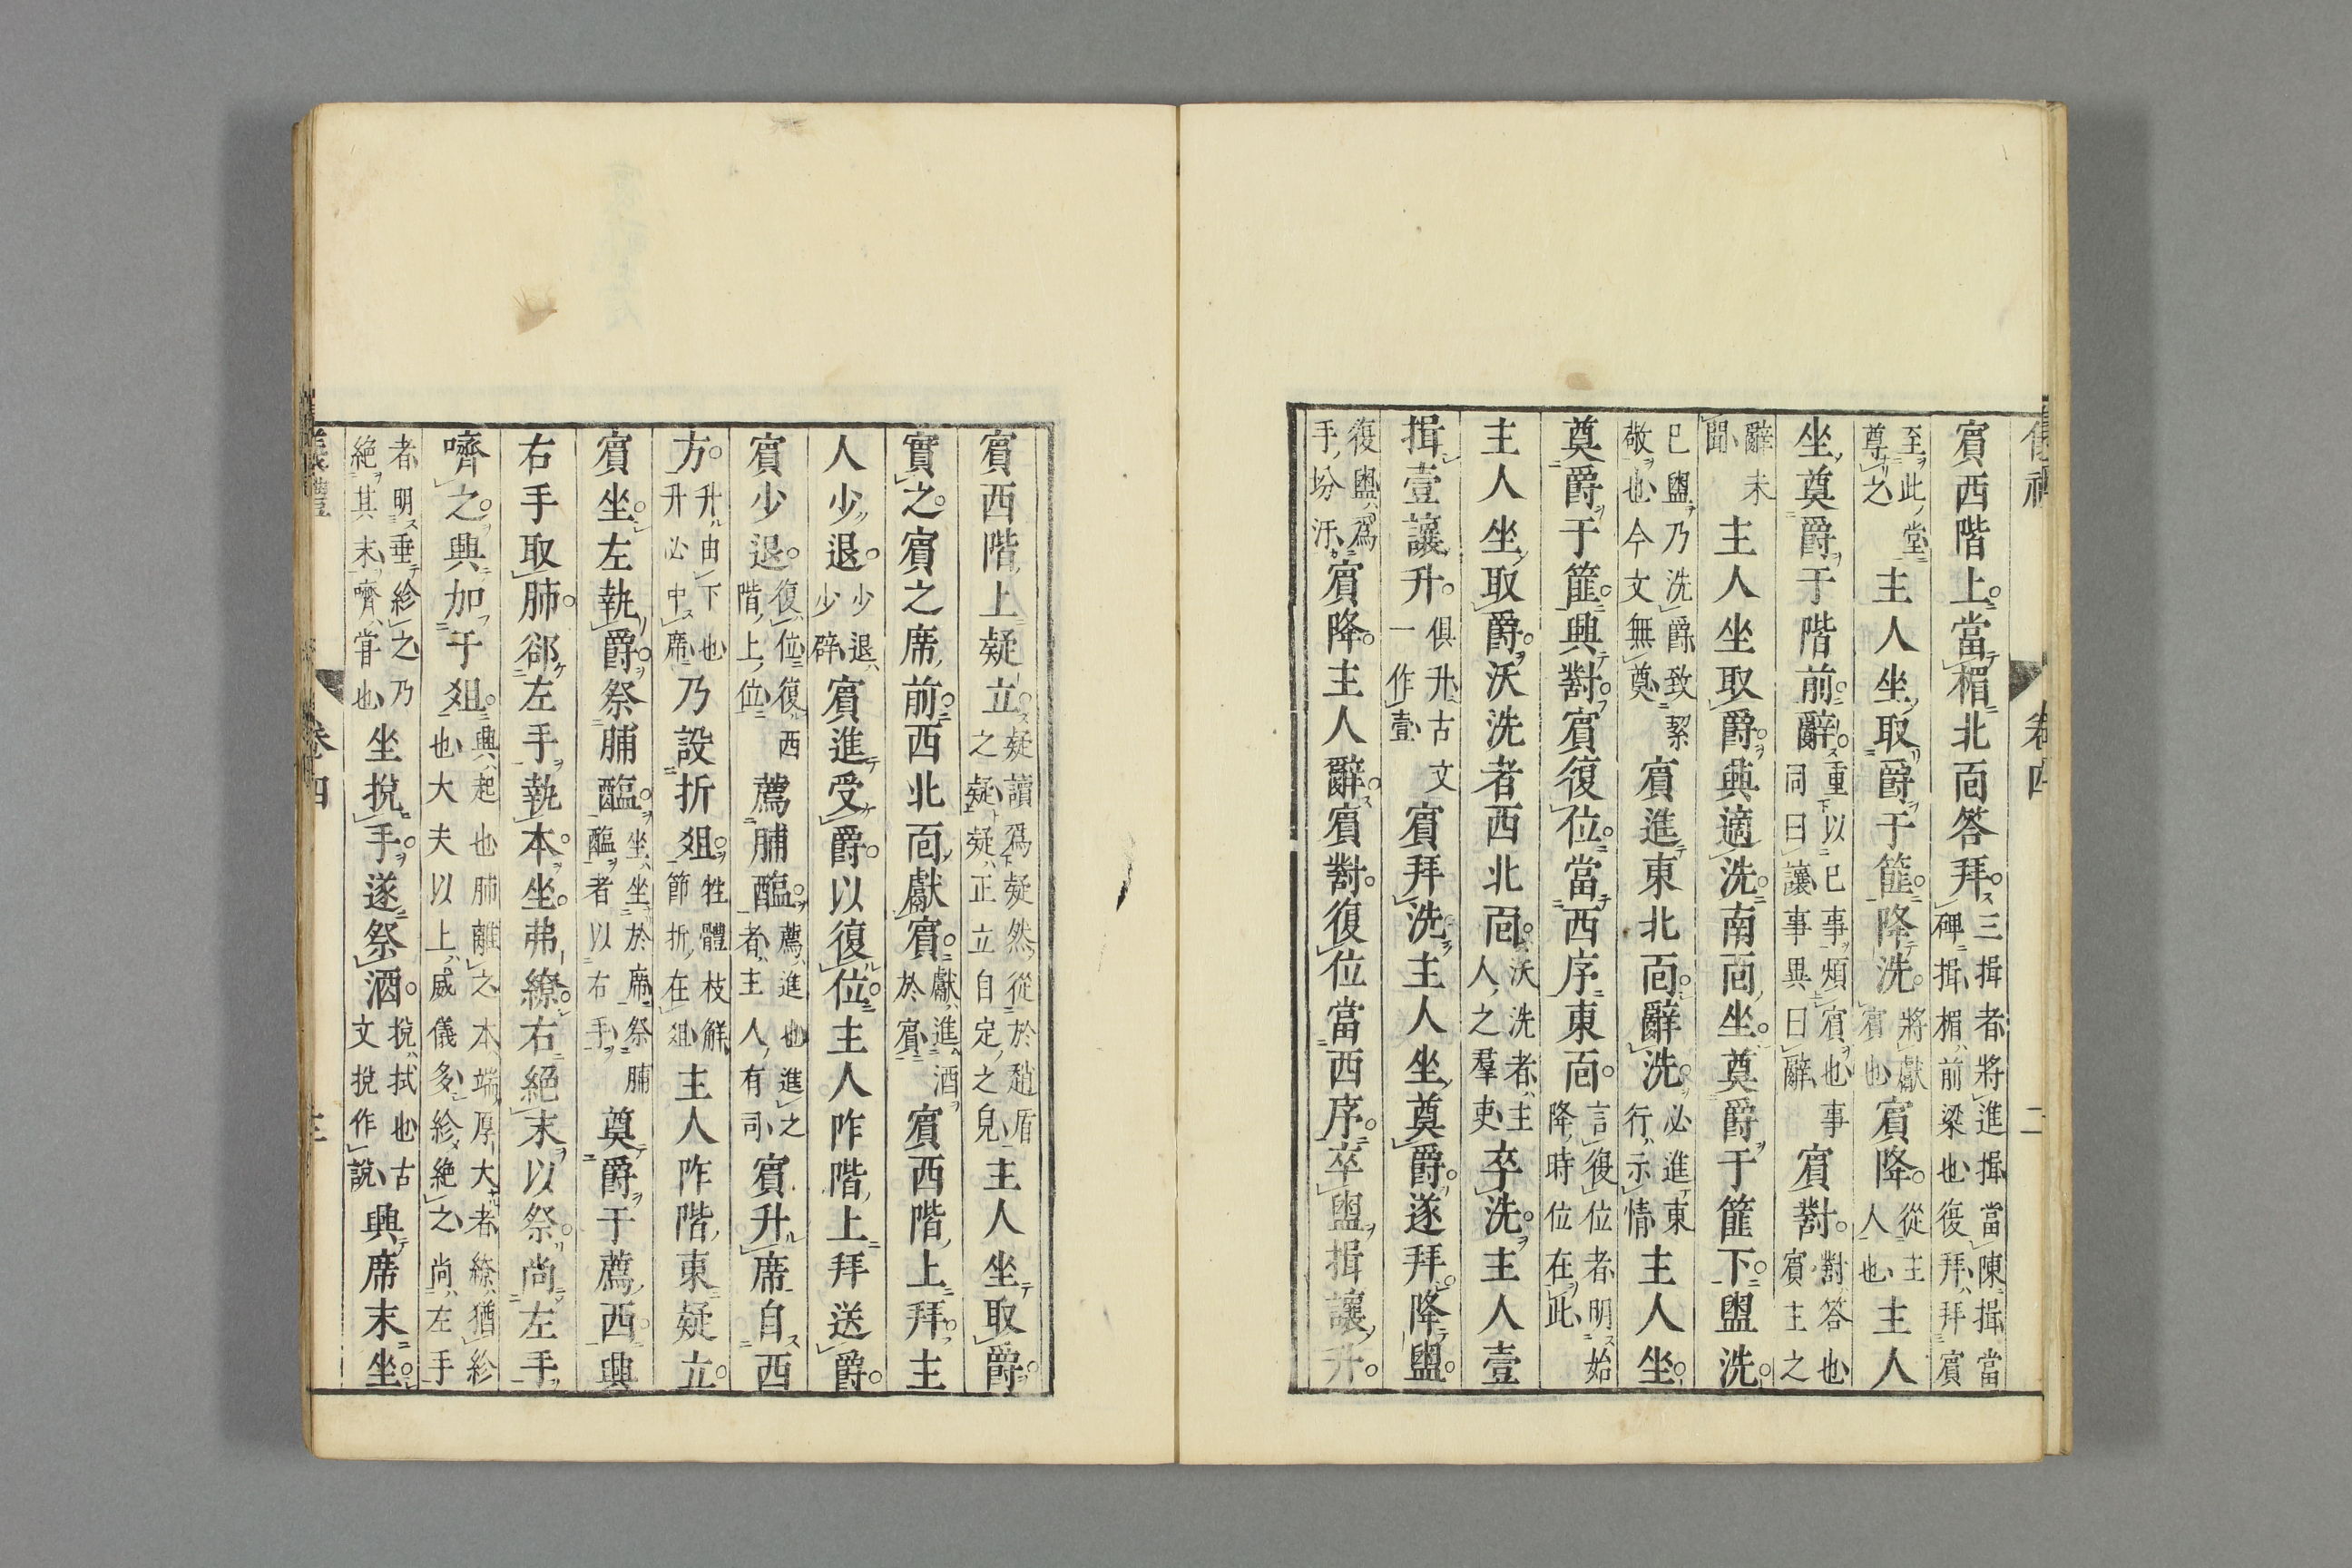 儀禮 卷四 二
賓西階上當楣北面答拜三揖者將進揖當陳揖當碑揖楣前梁也復拜拜賓
至此堂尊之主人坐取爵于篚降洗將獻賓也賓降從主人也主人
坐奠爵于階前辭重以已事煩賓也事同曰讓事異曰辭賓對對答也賓主之
辭未聞主人坐取爵興適洗南面坐奠爵于篚下盥洗
已盥乃洗爵致絜敬也今文無奠賓進東北面辭洗必進東行示情主人坐
奠爵于篚興對賓復位當西序東面言復位者明始降時位在此
主人坐取爵沃洗者西北面沃洗者主人之羣吏卒洗主人壹
揖壹讓升俱升古文一作壹賓拜洗主人坐奠爵遂拜降盥
復盥爲手坋汙賓降主人辭賓對復位當西序卒盥揖讓升
賓西階上疑立疑讀爲疑然從於趙盾之疑疑正立自定之皃主人坐取爵
實之賓之席前西北面獻賓獻進酒於賓賓西階上拜主
人少退少退少辟賓進受爵以復位主人阼階上拜送爵
賓少退復位復西階上位薦脯醢薦進也進之者主人有司賓升席自西
方升由下也升必中席乃設折俎牲體枝解節折在俎主人阼階東疑立
賓坐左執爵祭脯醢坐坐於席祭脯醢者以右手奠爵于薦西興
右手取肺郤左手執本坐弗繚右絕末以祭尚左手
嚌之興加于俎興起也肺離之本端厚大者繚猶紾也大夫以上威儀多紾絕之尚左手
者明垂紾之乃絕其末嚌嘗也坐挩手遂祭酒挩拭也古文挩作說興席末坐
儀禮 卷四